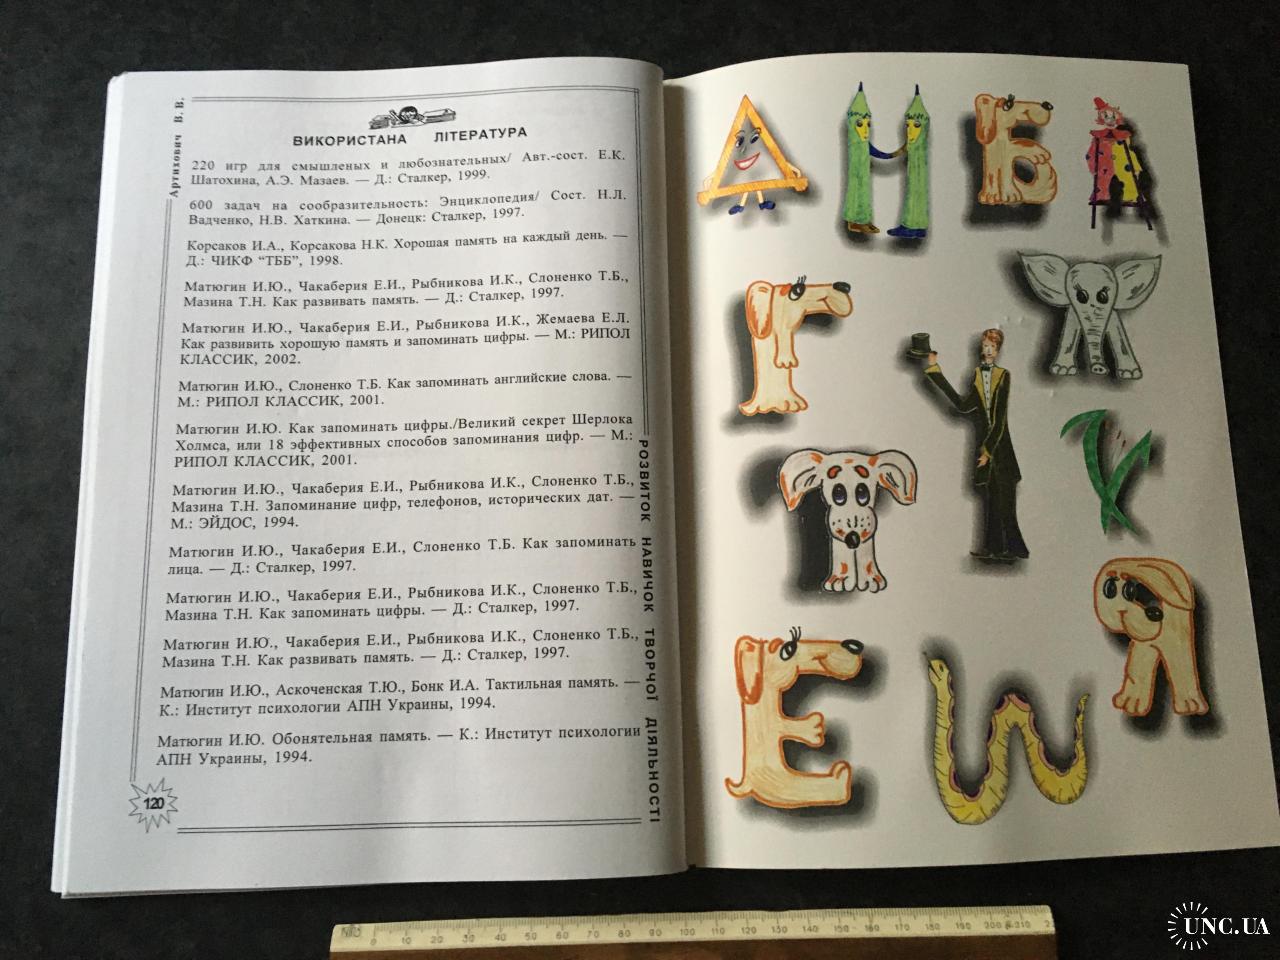 Артихович В. В.
ВИКОРИСТАНА ЛІТЕРАТУРА
220 игр для смышленых и любознательных/ Авт.-сост. Е.К.
Шатохина, А.Э. Мазаев. — Д.: Сталкер, 1999.
600 задач на сообразительность: Энциклопедия/ Сост. Н.Л.
Вадченко, Н.В. Хаткина. — Донецк: Сталкер, 1997.
Корсаков И.А., Корсакова Н.К. Хорошая память на каждый день. —
Д.: ЧИКФ “ТББ”, 1998.
Матюгин И.Ю., Чакаберия Е.И., Рыбникова И.К., Слоненко Т.Б.,
Мазина Т.Н. Как развивать память. — Д.: Сталкер, 1997.
Матюгин И.Ю., Чакаберия Е.И., Рыбникова И.К., Жемаева Е.Л.
Как развивить хорошую память и запоминать цифры. — М.: РИПОЛ
КЛАССИК, 2002.
Матюгин И.Ю., Слоненко Т.Б. Как запоминать английские слова. —
М.: РИПОЛ КЛАССИК, 2001.
Матюгин И.Ю. Как запоминать цифры./Великий секрет Шерлока
Холмса, или 18 эффективных способов запоминания цифр. — М.:
РИПОЛ КЛАССИК, 2001.
Матюгин И.Ю., Чакаберия Е.И., Рыбникова И.К., Слоненко Т.Б.,
Мазина Т.Н. Запоминание цифр, телефонов, исторических дат. —
М.: ЭЙДОС, 1994.
Матюгин И.Ю., Чакаберия Е.И., Слоненко Т.Б. Как запоминать
лица. — Д.: Сталкер, 1997.
Матюгин И.Ю., Чакаберия Е.И., Рыбникова И.К., Слоненко Т.Б.,
Мазина Т.Н. Как запоминать цифры. — Д.: Сталкер, 1997.
Матюгин И.Ю., Чакаберия Е.И., Рыбникова И.К., Слоненко Т.Б.,
Мазина Т.Н. Как развивать память. — Д.: Сталкер, 1997.
Матюгин И.Ю., Аскоченская Т.Ю., Бонк И.А. Тактильная память. —
К.: Институт психологии АПН Украины, 1994.
Матюгин И.Ю. Обонятельная память. — К.: Институт психологии
АПН Украины, 1994.
120
РОЗВИТОК НАВИЧОК ТВОРЧОЇ ДІЯЛЬНОСТІ
Д Н Б А
Г
Ч
К
Т
Я
Е
0 10 20 30 40 50 60 70 80 90 100 110 120 130 140 150 160 170 180 190 200 210
UNC.UA